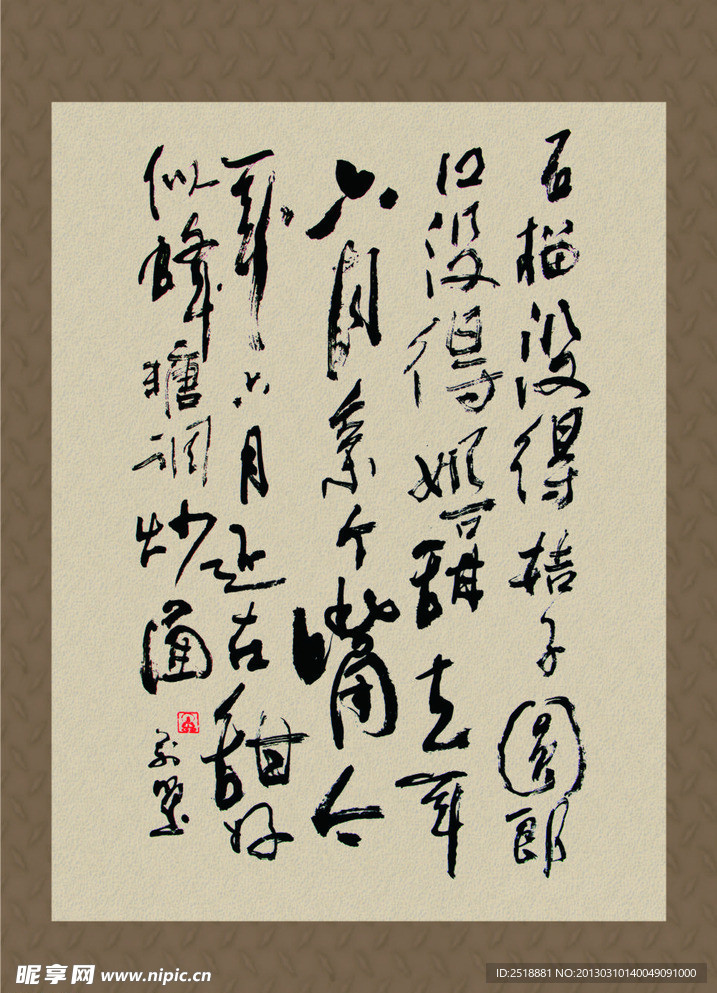 石榴没得桔子圆郎
口没得姐口甜去年
六月亲个嘴今
年六月还在甜好
似蜂糖调炒面
昵享网 www.nipic.cn
ID:2518881 NO:20130310140049091000